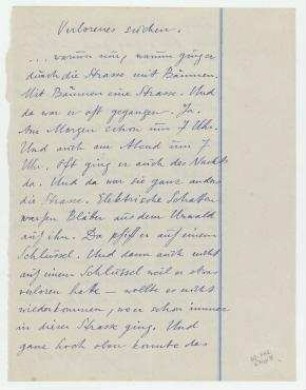 Verlorenes suchen.
... warum nur, warum ging er
durch die Strasse mit Bäumen.
Mit Bäumen eine Strasse. Und
da war er oft gegangen. Ja.
Am Morgen schon um 7 Uhr.
Und auch am Abend um 7
Uhr. Oft ging er auch des Nachts
da. Und da war sie ganz anders
die Strasse. Elektrische Schatten
warfen Blätter aus dem Urwald
auf ihn. Da pfeift er auf einem
Schlüssel. Und dann auch nicht
auf einem Schlüssel weil er etwas
verloren hatte – wollte es nicht
wiederkommen, wo er schon immer
in dieser Strasse ging. Und
ganz hoch oben konnte das